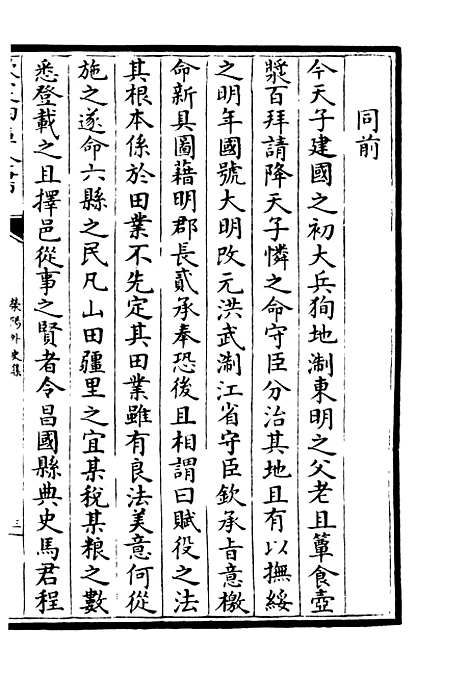 同前
今天子建國之初大兵狥地淛東明之父老且簞食壺
漿百拜請降天子憐之命守臣分治其地且有以撫綏
之明年國號大明改元洪武淛江省守臣欽承旨意檄
命新具圖藉明郡長貳承奉恐後且相謂曰賦役之法
其根本係於田業不先定其田業雖有良法美意何從
施之遂命六縣之民凡山田疆里之宜某稅某粮之數
悉登載之且擇邑從事之賢者令昌國縣典史馬君程
滎陽外史集
三